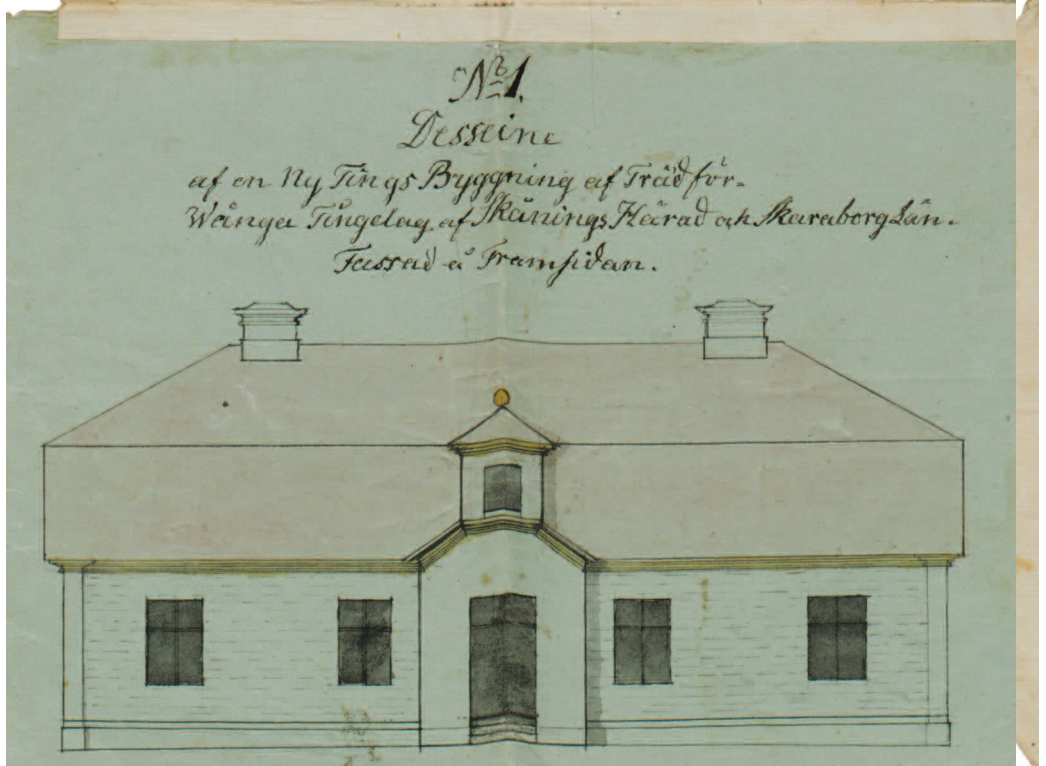 No 1.
Desseine
af en Ny Tings Byggning af Träd för-
Wånga Tingelag af Skånings Härad och Skaraborg Län.
Fassad å Framsidan.